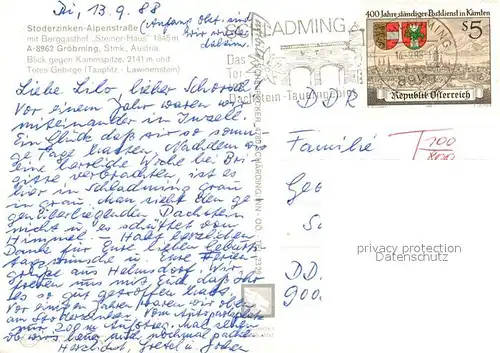 Di, 13.9.88
(Anfang Okt. sind
wir wieder
daheim.
Stoderzinken-Alpenstraße
mit Berggasthof "Steiner-Haus" 1845 m
A-8962 Gröbming, Stmk., Austria
Blick gegen Kammspitze, 2141 m und
Totes Gebirge (Tauplitz - Lawinenstein)
Liebe Lilo, lieber Schorsch
Vor einem Jahr waren wir
miteinander in Inzell.
Ein Glück daß wir so sonni-
ge Tage hatten. Nachdem wir
eine herrliche Woche bei Bri-
gitte verbrachten, ist es
hier in Schladming grau
in grau. Man sieht den ge-
genüberliegenden Dachstein
nicht u. es schüttet vom
Himmel - Habt herzlichen
Dank für Eure lieben Geburts-
tagswünsche u. Eure Ferien-
grüße aus Helmsdorf. Wir
freuen uns mit, daß Ihr
es so gut getroffen habt.
Vor einigen Jahren waren wir oben
am Stoderzinken. Vom Autoparkplatz
nur 200 m Aufstieg. Mal sehen
ob wir's heuer auch nochmal packen.
Herzlichst, Gretel u.
SCHLADMING
Das
Tor
Dachstein-Tauernregion
400 Jahre ständiger Postdienst in Kärnten
S5
Republik Österreich
DDR
Familie
T 200
Geo
DD
900
privacy protection
Datenschutz